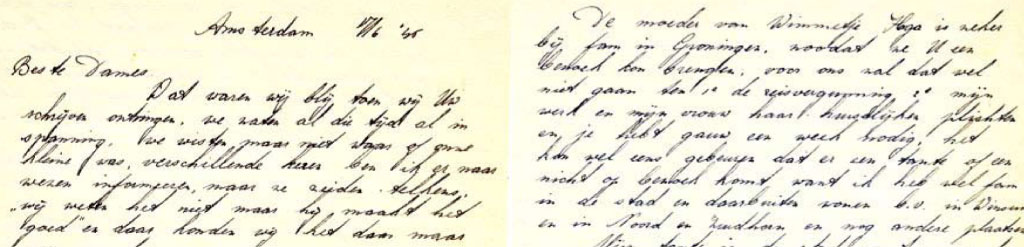 Amsterdam 17/6 '45
Beste Dames.
Dat waren wij blij toen wij Uw
schrijven ontvingen, we zaten al die tijd al in
spanning. We wisten maar niet waar of onze
kleine was, verschillende keren ben ik er naar
wezen informeren, maar ze zeiden telkens,
"wij weten het niet maar hij maakt het
goed" en daar konden wij het daar maar
De moeder van Wimmetje Hoga is zeker
bij fam in Groningen, zoodat ze U een
bezoek kon brengen, voor ons zal dat wel
niet gaan ten 1e de reisvergunning 2e mijn
werk en mijn vrouw haar huiselijken plichten
en je hebt gauw een week noodig, het
kan wel eens gebeuren dat er een tante of een
nicht op bezoek komt want ik heb wel fam
in de stad en daarbuiten wonen b.v. in Winsum
en in Noord en Zuidhorn en nog andere plaatsen
Mijn tante in de